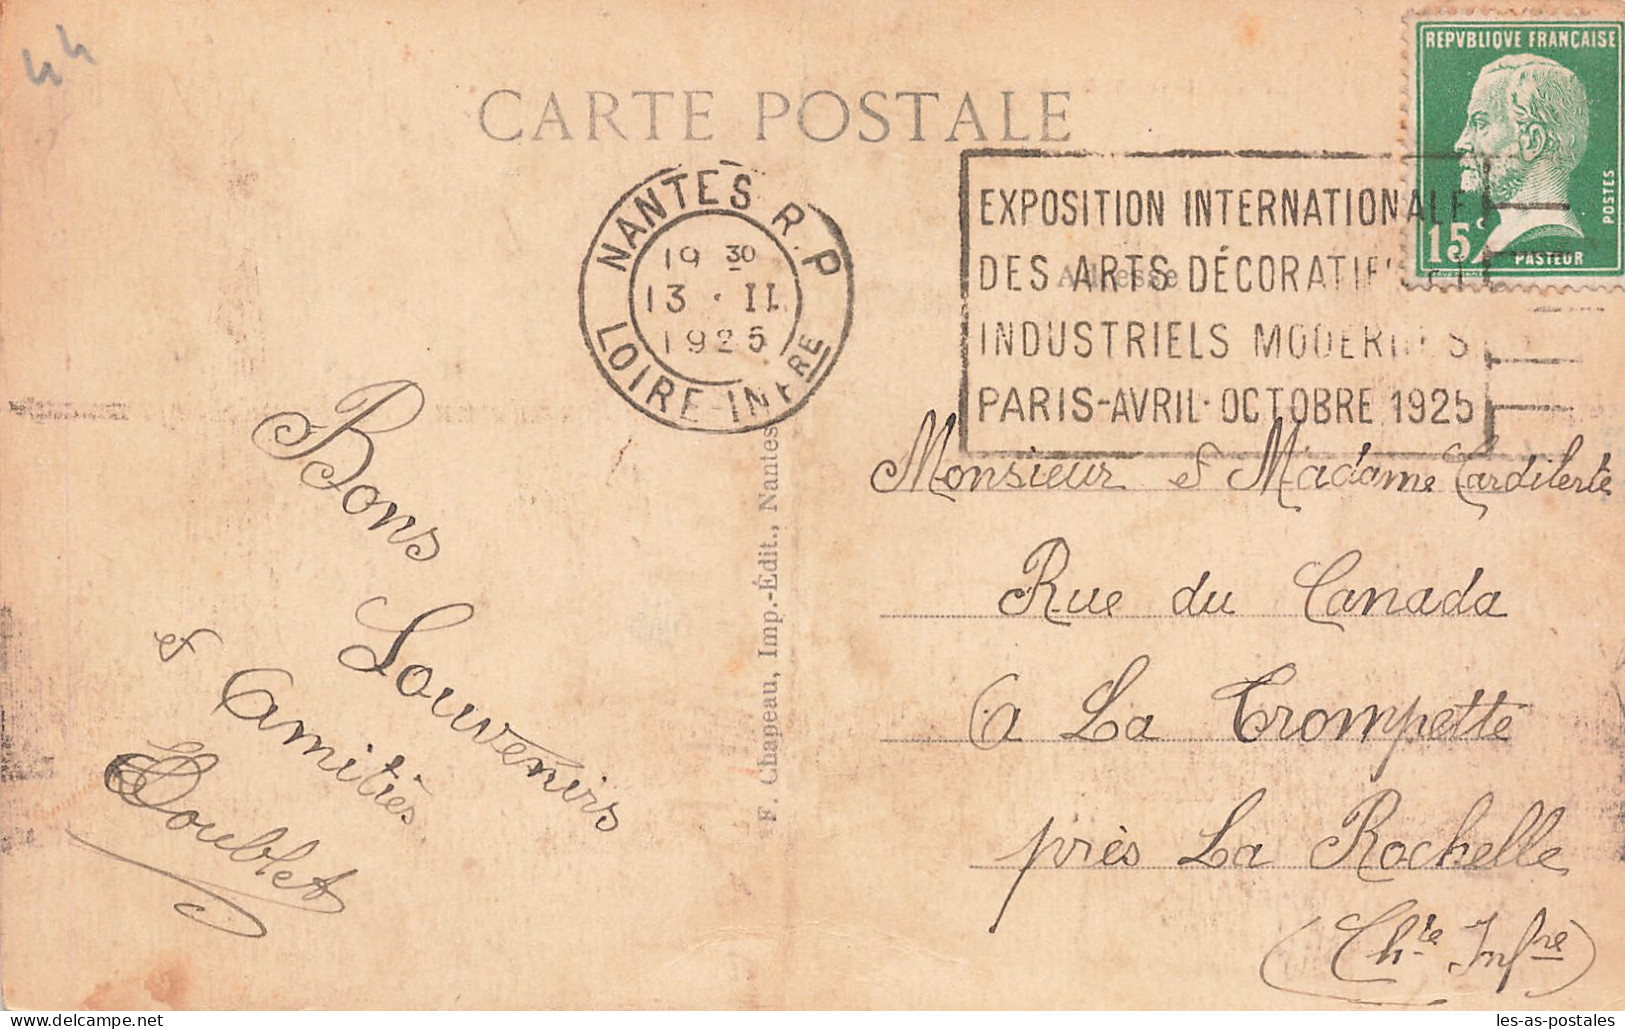 44
CARTE POSTALE
REPVBLIQVE FRANÇAISE
POSTES
15c
PASTEUR
NANTES R. P
19 30
13 · II
1925
LOIRE-INFRE
EXPOSITION INTERNATIONALE
DES ARTS DÉCORATIFS ET
INDUSTRIELS MODERNES
PARIS-AVRIL·OCTOBRE 1925
Adresse
F. Chapeau, Imp.-Édit., Nantes
Bons
Souvenirs
et Amitiés
Doublet
Monsieur et Madame Cardilerte
Rue du Canada
a La Trompette
près La Rochelle
(Chte Infre)
les-as-postales